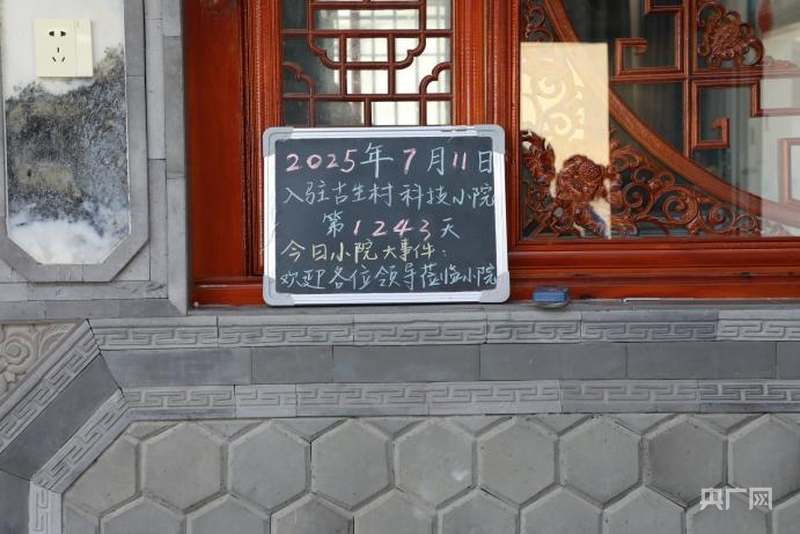 2025年7月11日
入驻古生村科技小院
第1243天
今日小院大事件：
欢迎各位领导莅临小院
央广网